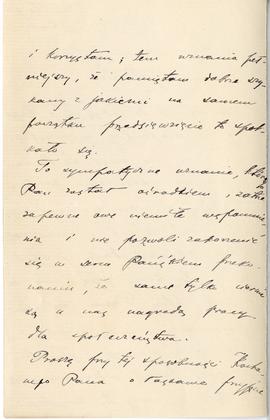 i korzystam; tem uznania peł
niejszy, że pamiętam dobre szy
kany z jakiemi na samem
początku przedsięwzięcie to spot
kało się.
To sympatyczne uznanie, którego
Pan został ośrodkiem,
zapewne owe niemiłe wspomnie
nia i nie pozwoli zakorzenić
się w sercu Pańskiem przeko
naniu, że same tylko
są u nas nagrodą pracy
dla społeczeństwa.
Proszę przy tej sposobności Kocha
nego Pana o łaskawe przyjęcie